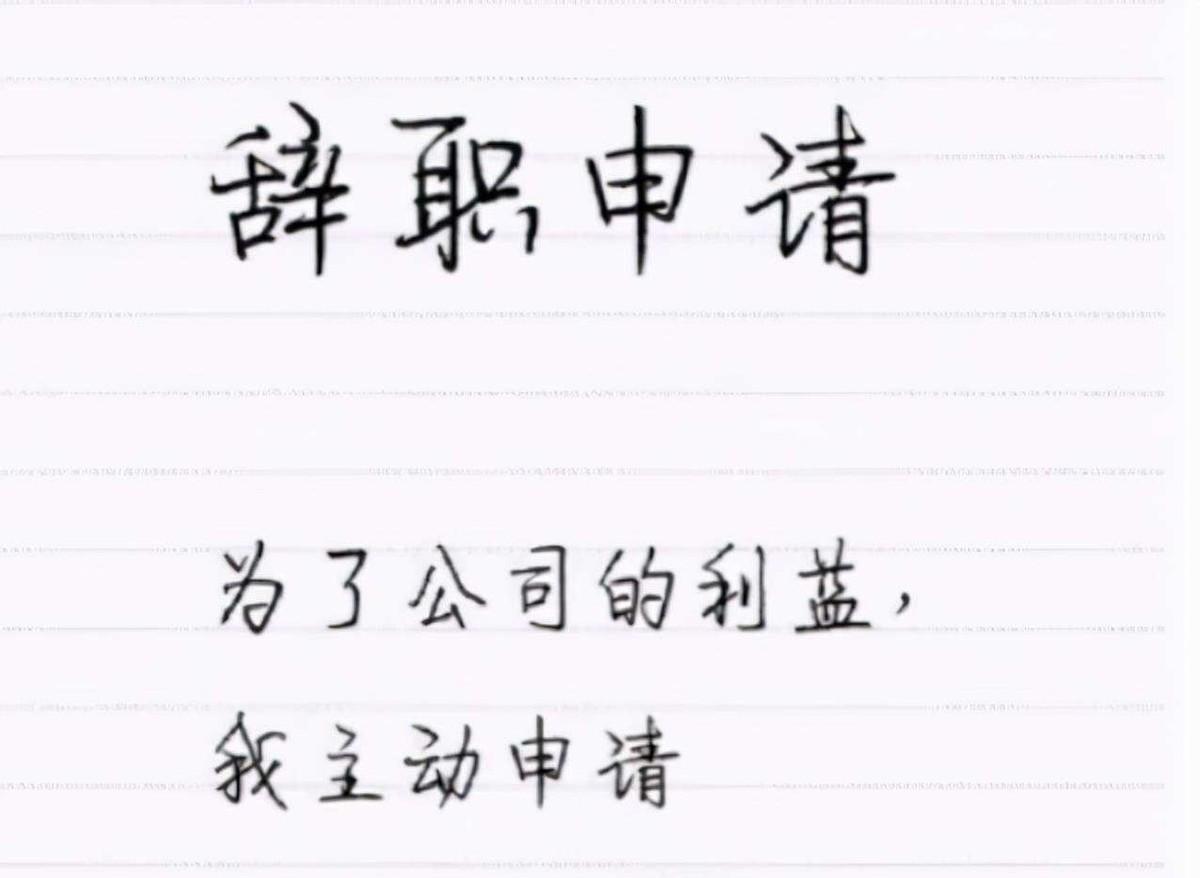 辞职申请
为了公司的利蓝，
我主动申请